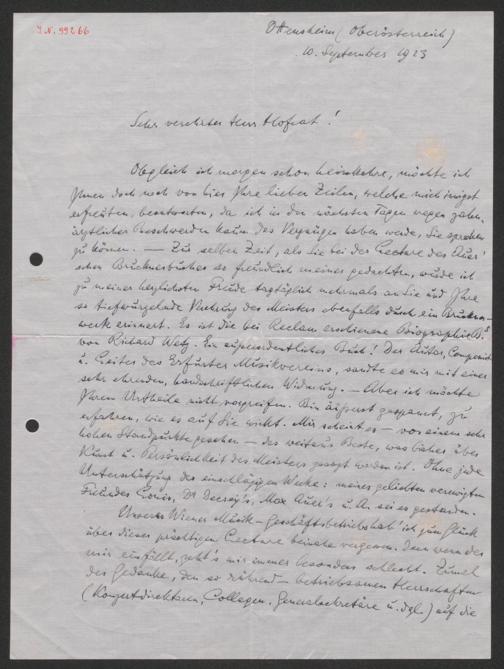 J.N. 99266
Ottensheim (Oberösterreich)
10. September 1923
Sehr verehrter Herr Hofrat!
Obgleich ich morgen schon heimkehre, möchte ich
Ihnen doch noch von hier Ihre lieben Zeilen, welche mich innigst
erfreuten, beantworten, da ich in den nächsten Tagen wegen
ärztlicher Beschwerden kaum das Vergnügen haben werde, Sie sprechen
zu können. — Zur selben Zeit, als Sie bei der Lecture des Auer'
schen Brucknerbuches so freundlich meiner gedachten, wurde ich
zu meiner herzlichsten Freude tagtäglich mehrmals an Sie und Ihre
so tiefwurzelnde Verehrung des Meisters ebenfalls durch ein Bruckner-
werk erinnert. Es ist die bei Reclam erschienene Biographie B.'s
von Richard Wetz. Ein außerordentliches Buch! Der Autor, Componist
u. Leiter des Erfurter Musikvereins, sandte es mir mit einer
sehr ehrenden, handschriftlichen Widmung. — Aber ich möchte
Ihrem Urteile nicht vorgreifen. Bin äußerst gespannt, zu
erfahren, wie es auf Sie wirkt. Mir scheint es — von einem sehr
hohen Standpunkte gesehen — das weitaus Beste, was bisher über
Kunst u. Persönlichkeit des Meisters gesagt worden ist. Ohne jede
Unterstützung der einschlägigen Werke: meines geliebten verewigten
Freundes Louis, Dr Decsey's, Max Auer's u. A. sei es gestanden.
Unseren Wiener Musik-Geschäftsbetrieb hab' ich zum Glück
über dieser prächtigen Lecture beinahe vergessen. Denn wenn der
mir einfällt, geht's mir immer besonders schlecht. Zumal
der Gedanke, den so rührend-betriebsamen Herrschaften
(Konzertdirektoren, Collegen, Generalsecretäre u. dgl.) auf die